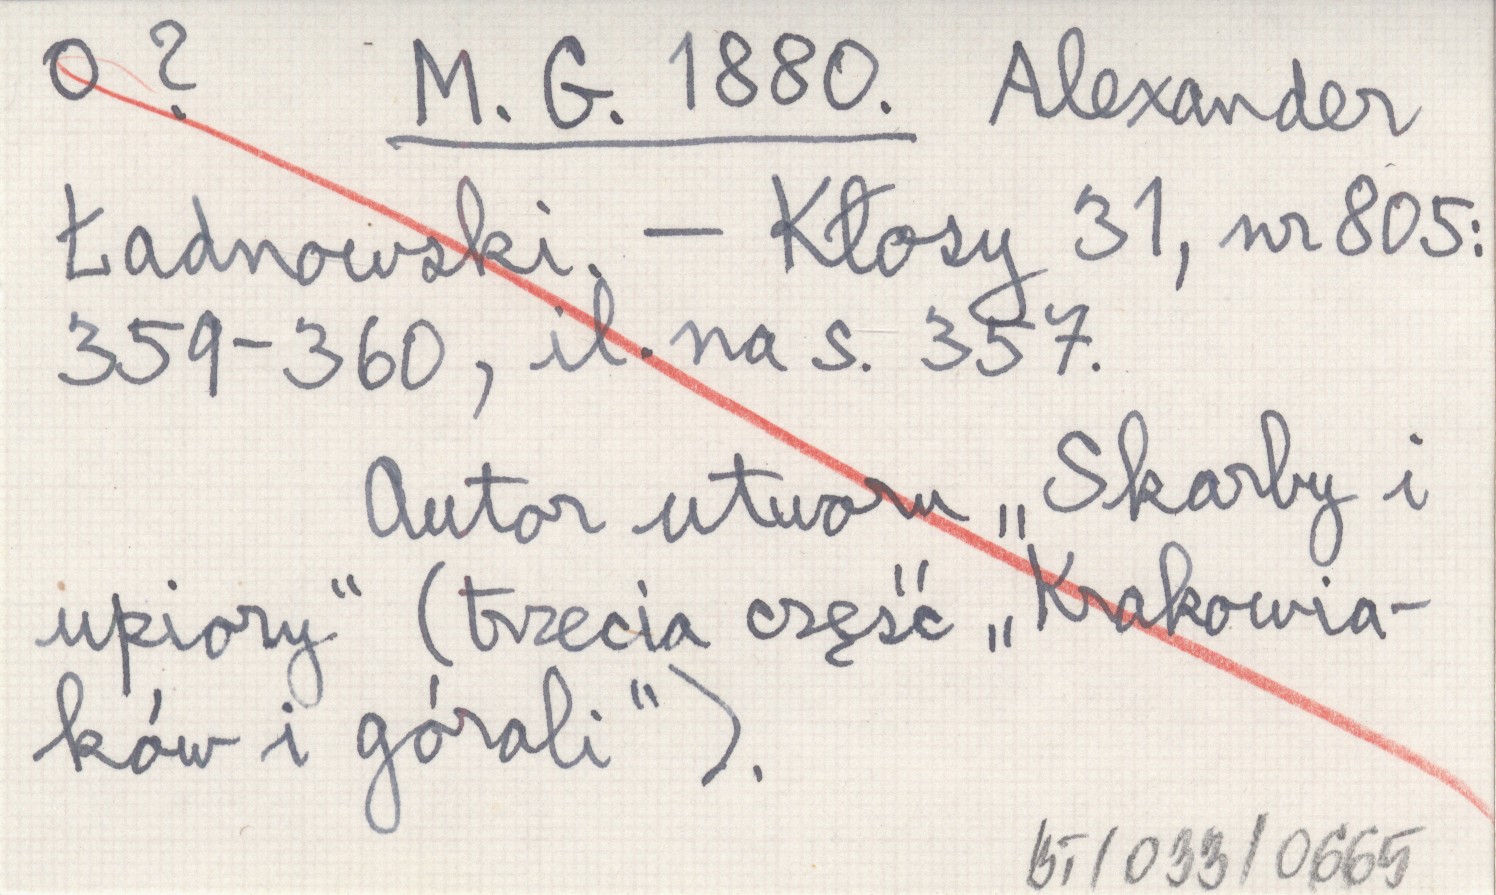 O ? M. G. 1880. Alexander
Ładnowski. – Kłosy 31, nr 805:
359-360, il. na s. 357.
Autor utworu „Skarby i
upiory" (trzecia część „Krakowia-
ków i górali").
BT/033/0665